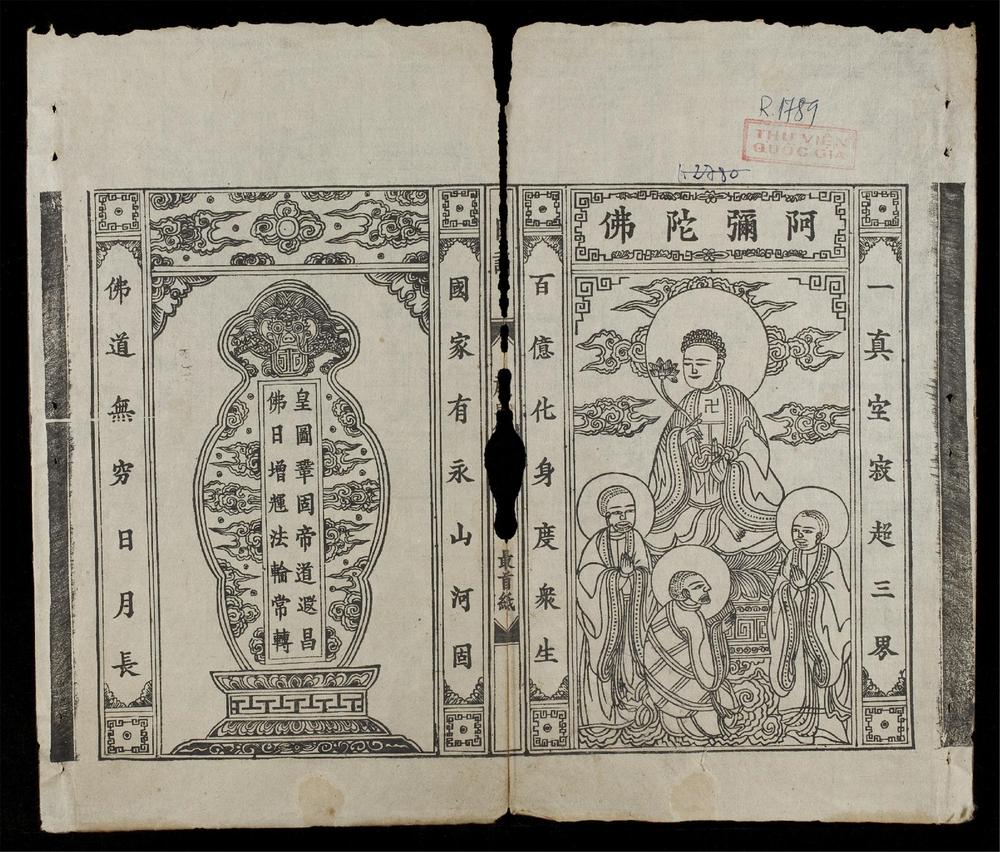 R.1789
THƯ VIỆN
QUỐC GIA
阿彌陀佛
一真空寂超三界
百億化身度衆生
卍
最首紙
國家有永山河固
皇圖鞏固帝道遐昌
佛日增輝法輪常轉
佛道無穷日月長